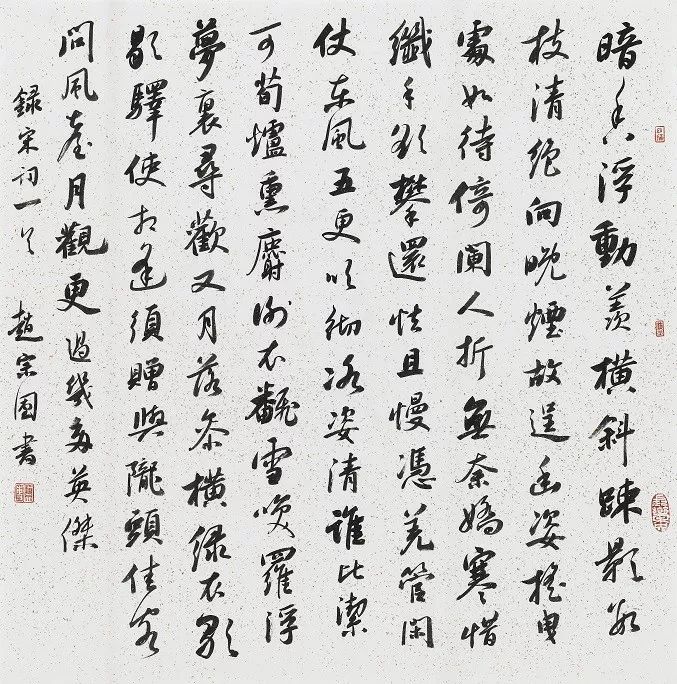 暗香浮動羨橫斜疎影數
枝清絕向晚煙故逞幽姿搖曳
處如待倚闌人折無奈嬌寒惜
纖手欲攀還怯且慢憑羌管閑
仗東風五更吹徹冰姿清誰比潔
可荀爐熏麝謝衣翻雪喚羅浮
夢裏尋歡又月落參橫綠衣歌
歇驛使相逢須贈與隴頭佳客
問風臺月觀更過幾多英傑
録宋詞一首 趙宗國書